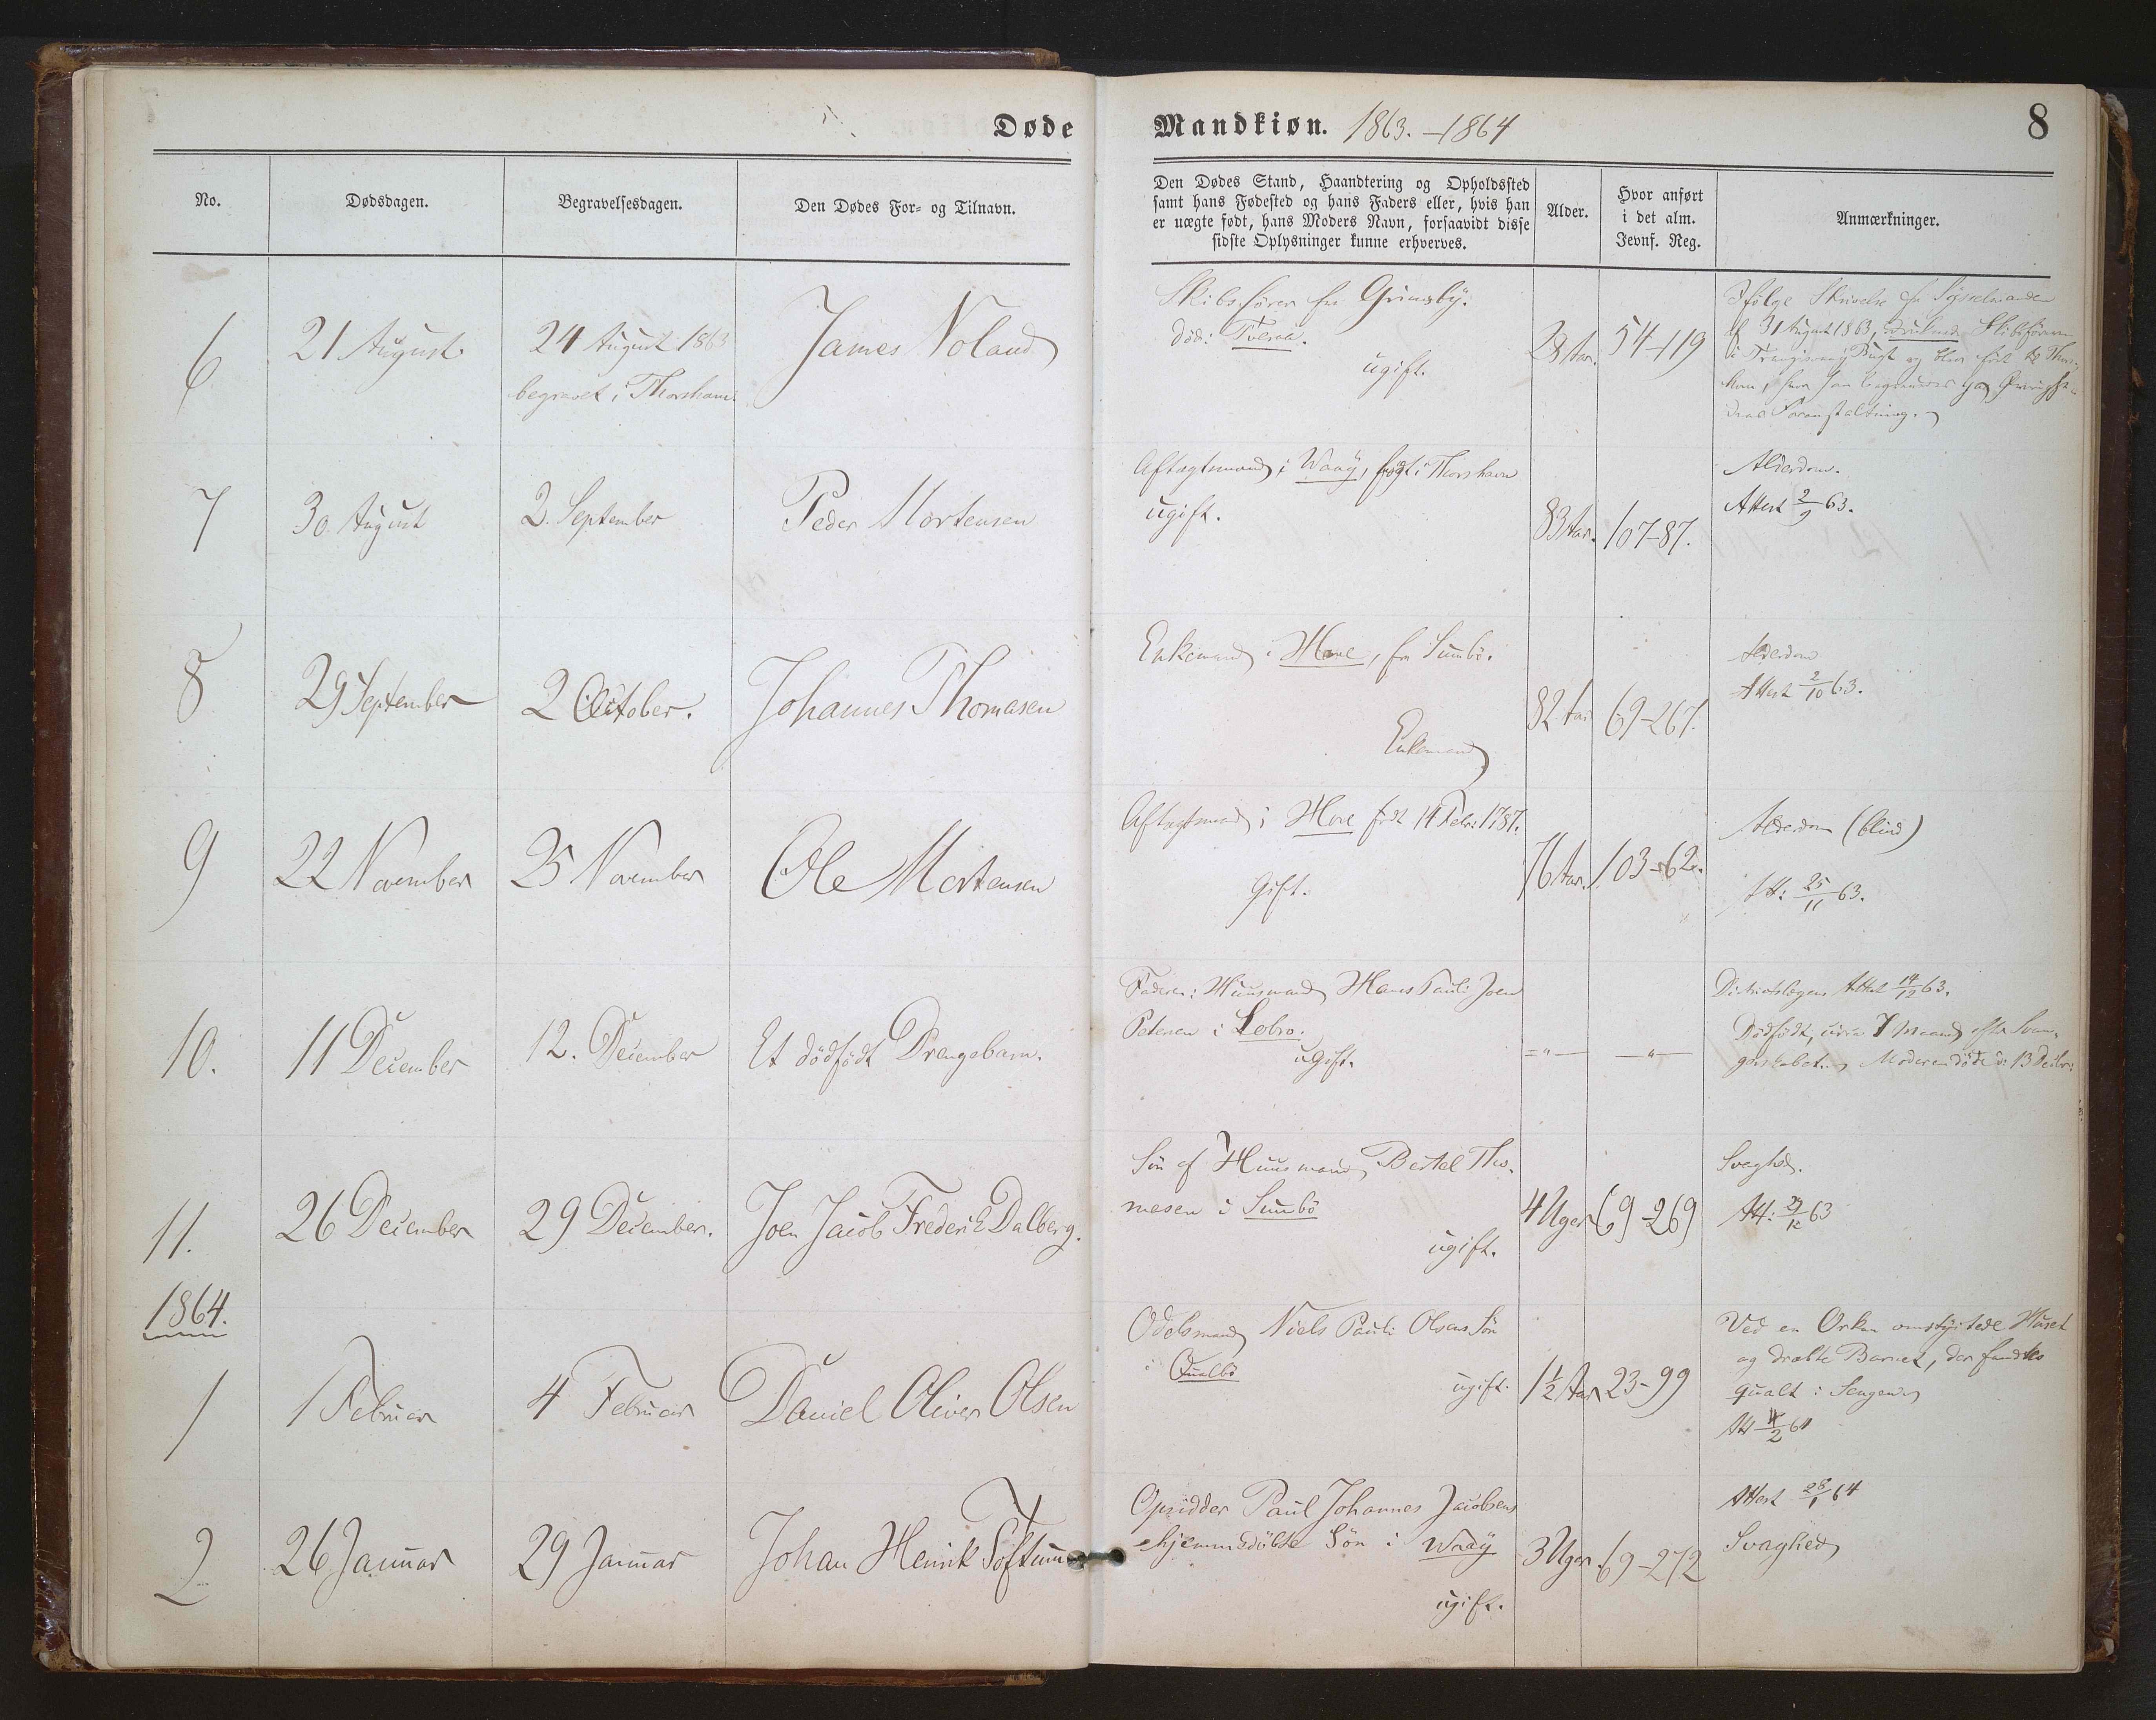 Døde Mandkiøn. 1863.–1864
8
No.
Dødsdagen.
Begravelsesdagen.
Den Dødes For- og Tilnavn.
Den Dødes Stand, Haandtering og Opholdssted
samt hans Fødested og hans Faders eller, hvis han
er uægte født, hans Moders Navn, forsaavidt disse
sidste Oplysninger kunne erhverves.
Alder.
Hvor anført
i det alm.
Jevnf. Reg.
Anmærkninger.
6
21 August.
24 August 1863
begravet i Thorshavn.
James Noland
Skibsfører fra Grimsby.
død: Tverå.
ugift.
28 Aar.
54–119
Ifølge Skrivelse fra Sysselmanden
af 31 August 1863, druknede Skibsføreren
i Trangisvaag Bugt og blev ført til Thors-
havn, hvor han begravedes paa Øvrighe-
dens Foranstaltning.
7
30 August
2. September
Peder Mortensen
Aftægtsmand i Waag, født i Thorshavn
ugift.
83 Aar.
107–87.
Alderdom.
Attest 2/9 63.
8
29 September
2 October.
Johannes Thomasen
Enkemand i Hove, fra Sumbø.
Enkemand
82 Aar
69–267.
Alderdom
Attest 2/10 63.
9
22 November
25 November
Ole Mortensen
Aftægtsmand i Hove født 14 Febr: 1787.
Gift.
76 Aar.
103–62.
Alderdom (blind)
Att: 25/11 63.
10.
11 December
12. December
Et dødfødt Drengebarn.
Faderen: Huusmand Hans Pauli Joen
Petersen i Lobro.
ugift.
–„–
–„–
Districtslægens Attest 14/12 63.
Dødfødt, circa 7 Maaned efter Svan-
gerskabet. Moderen døde d: 13 Decbr:
11.
26 December
29 December.
Joen Jacob Frederik Dalberg.
Søn af Huusmand Bertel Tho-
mesen i Sumbø
ugift.
4 Uger
69–269
Svaghed.
Att: 29/12 63
1864.
1
1 Februar
4 Februar
Daniel Oliver Olsen
Odelsmand Niels Pauli Olsens Søn
i Qualbø
ugift.
1½ Aar
23–99
Ved en Orkan omstyrtede Huset
og dræbte Barnet, der fandtes
qualt i Sengen
Att 4/2 64
2
26 Januar
29 Januar
Johan Henrik Toftum
Opsidder Paul Johannes Jacobsens
hjemmedøbte Søn i Waag
ugift.
3 Uger.
69–272
Attest 28/1 64
Svaghed